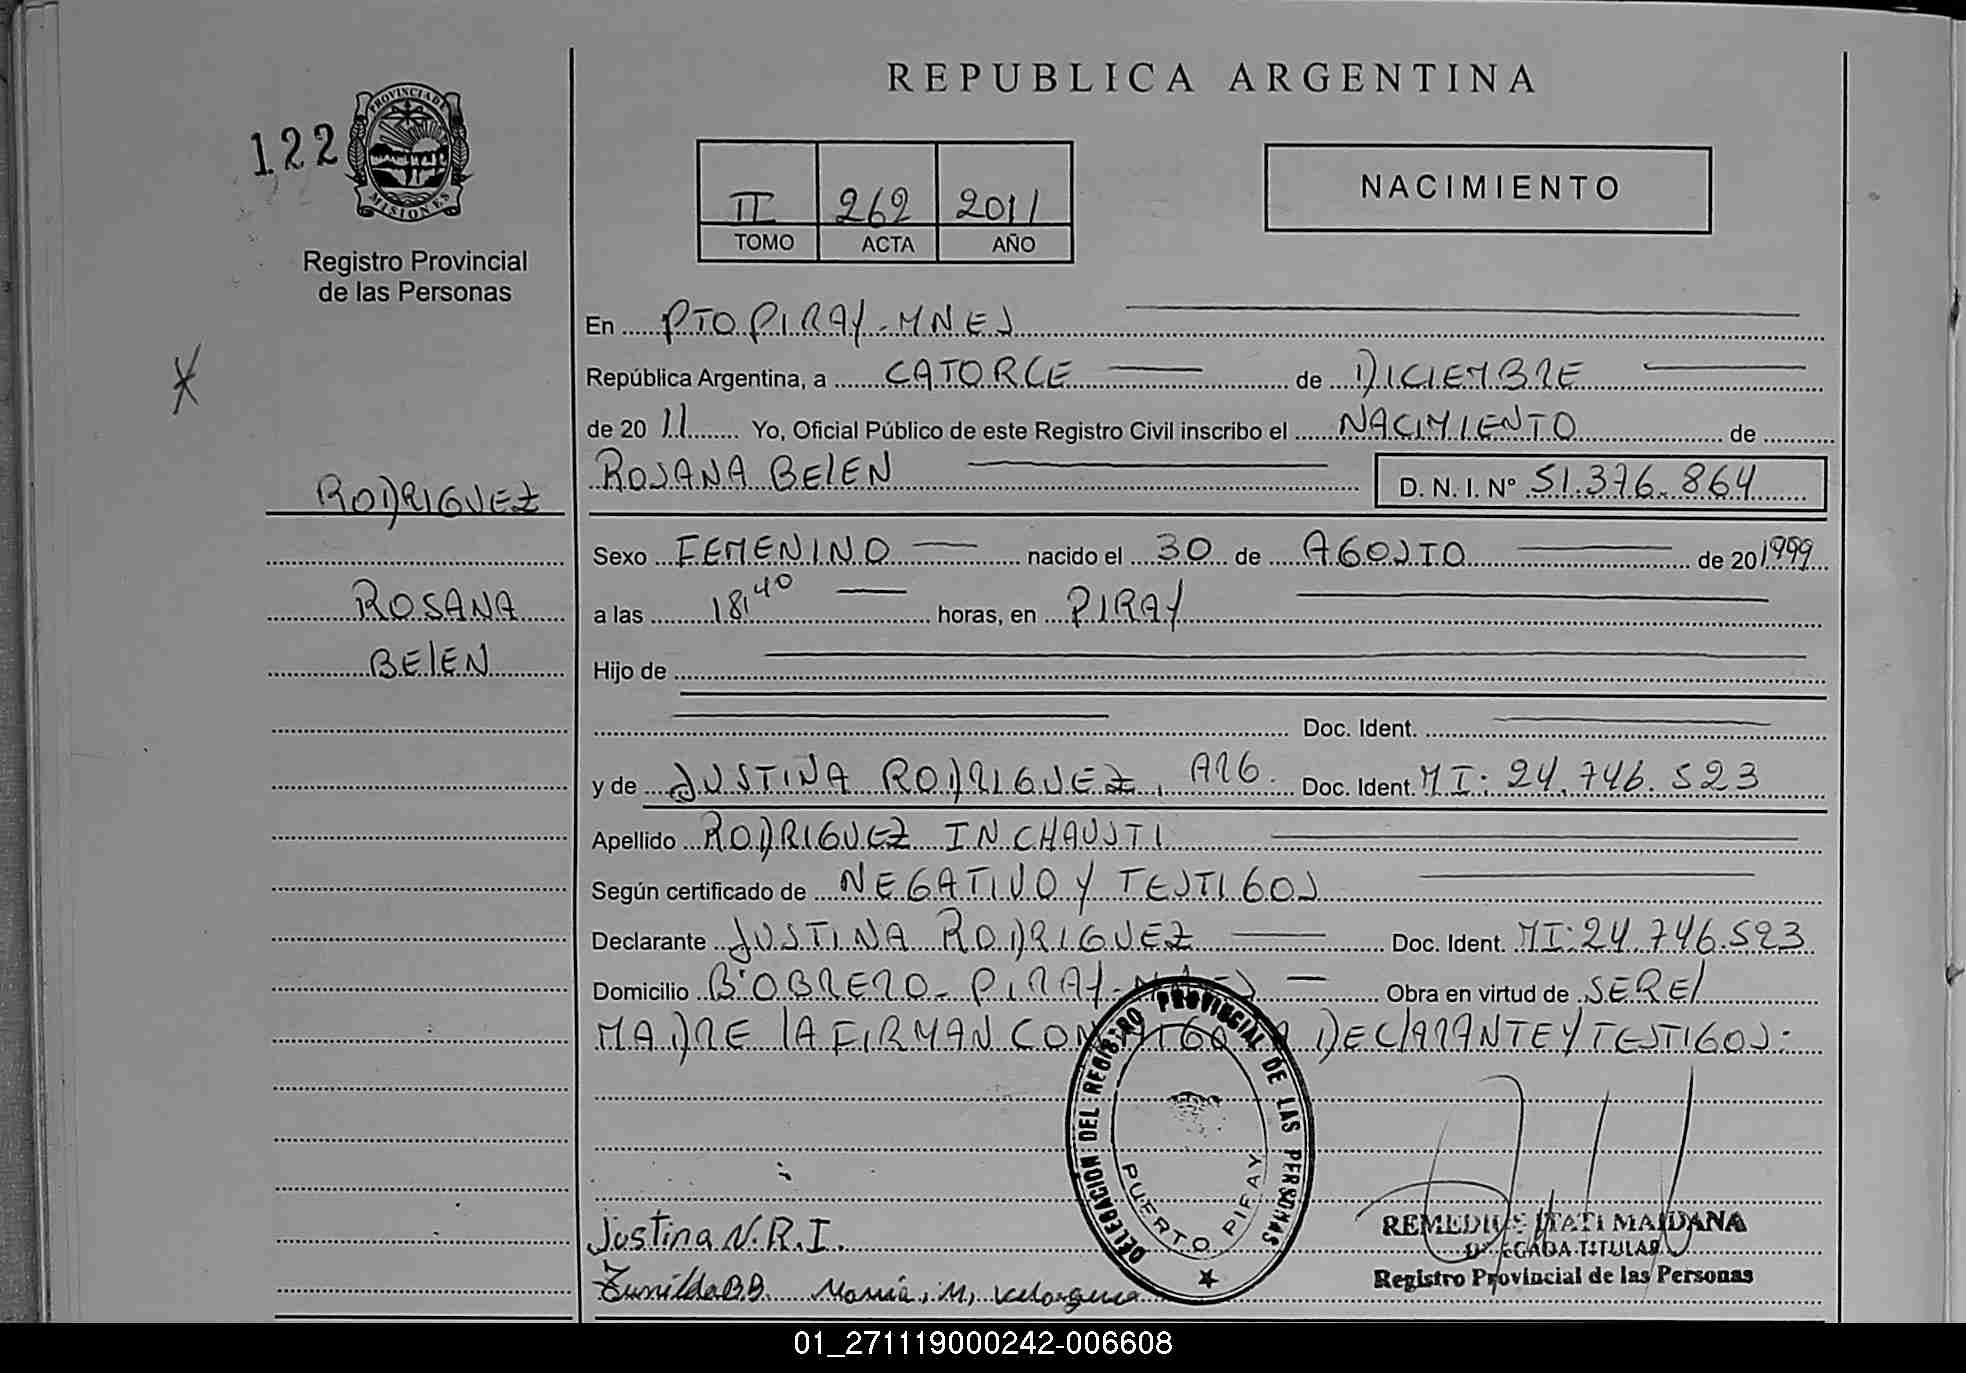 REPUBLICA ARGENTINA
122
PROVINCIA DE MISIONES
Registro Provincial
de las Personas
II 262 2011
TOMO ACTA AÑO
NACIMIENTO
En PTO PIRAY - MNES
República Argentina, a CATORCE de DICIEMBRE
de 2011 Yo, Oficial Público de este Registro Civil inscribo el NACIMIENTO de
ROSANA BELEN D. N. I. N° 51.376.864
RODRIGUEZ
Sexo FEMENINO nacido el 30 de AGOSTO de 20 1999
ROSANA
a las 18,40 horas, en PIRAY
BELEN
Hijo de
Doc. Ident.
y de JUSTINA RODRIGUEZ, ARG. Doc. Ident. MI: 24.746.523
Apellido RODRIGUEZ INCHAUSTI
Según certificado de NEGATIVO Y TESTIGOS
Declarante JUSTINA RODRIGUEZ Doc. Ident. MI: 24.746.523
Domicilio B° OBRERO - PIRAY - MNES Obra en virtud de SER EL
MADRE LA FIRMAN CONMIGO LA DECLARANTE Y TESTIGOS:
DELEGACION DEL REGISTRO PROVINCIAL DE LAS PERSONAS
PUERTO PIRAY
Justina N. R. I.
REMEDIOS ITATI MAIDANA
DELEGADA TITULAR
Registro Provincial de las Personas
Zunilda B.B. María, M,
01_271119000242-006608